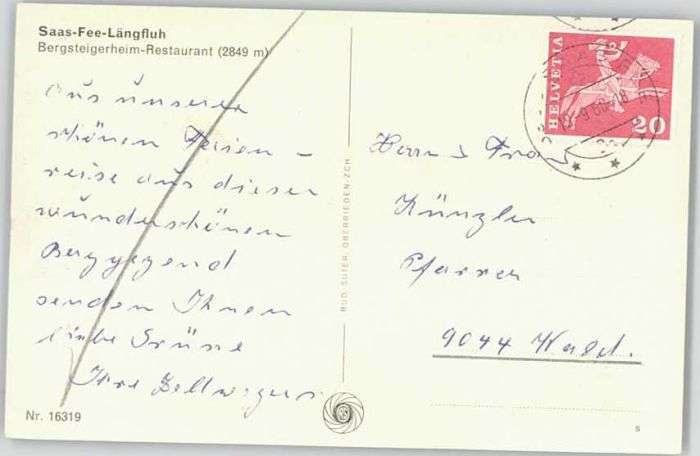 Saas-Fee-Längfluh
Bergsteigerheim-Restaurant (2849 m)
Aus unserer
schönen Ferien-
reise aus dieser
wunderschönen
Berggegend
senden Ihnen
liebe Grüsse
Ihre Zellwegers
Nr. 16319
RUD. SUTER, OBERRIEDEN-ZCH.
HELVETIA
20
Herrn & Frau
Künzler
Pfarrer
9044 Wald.
S